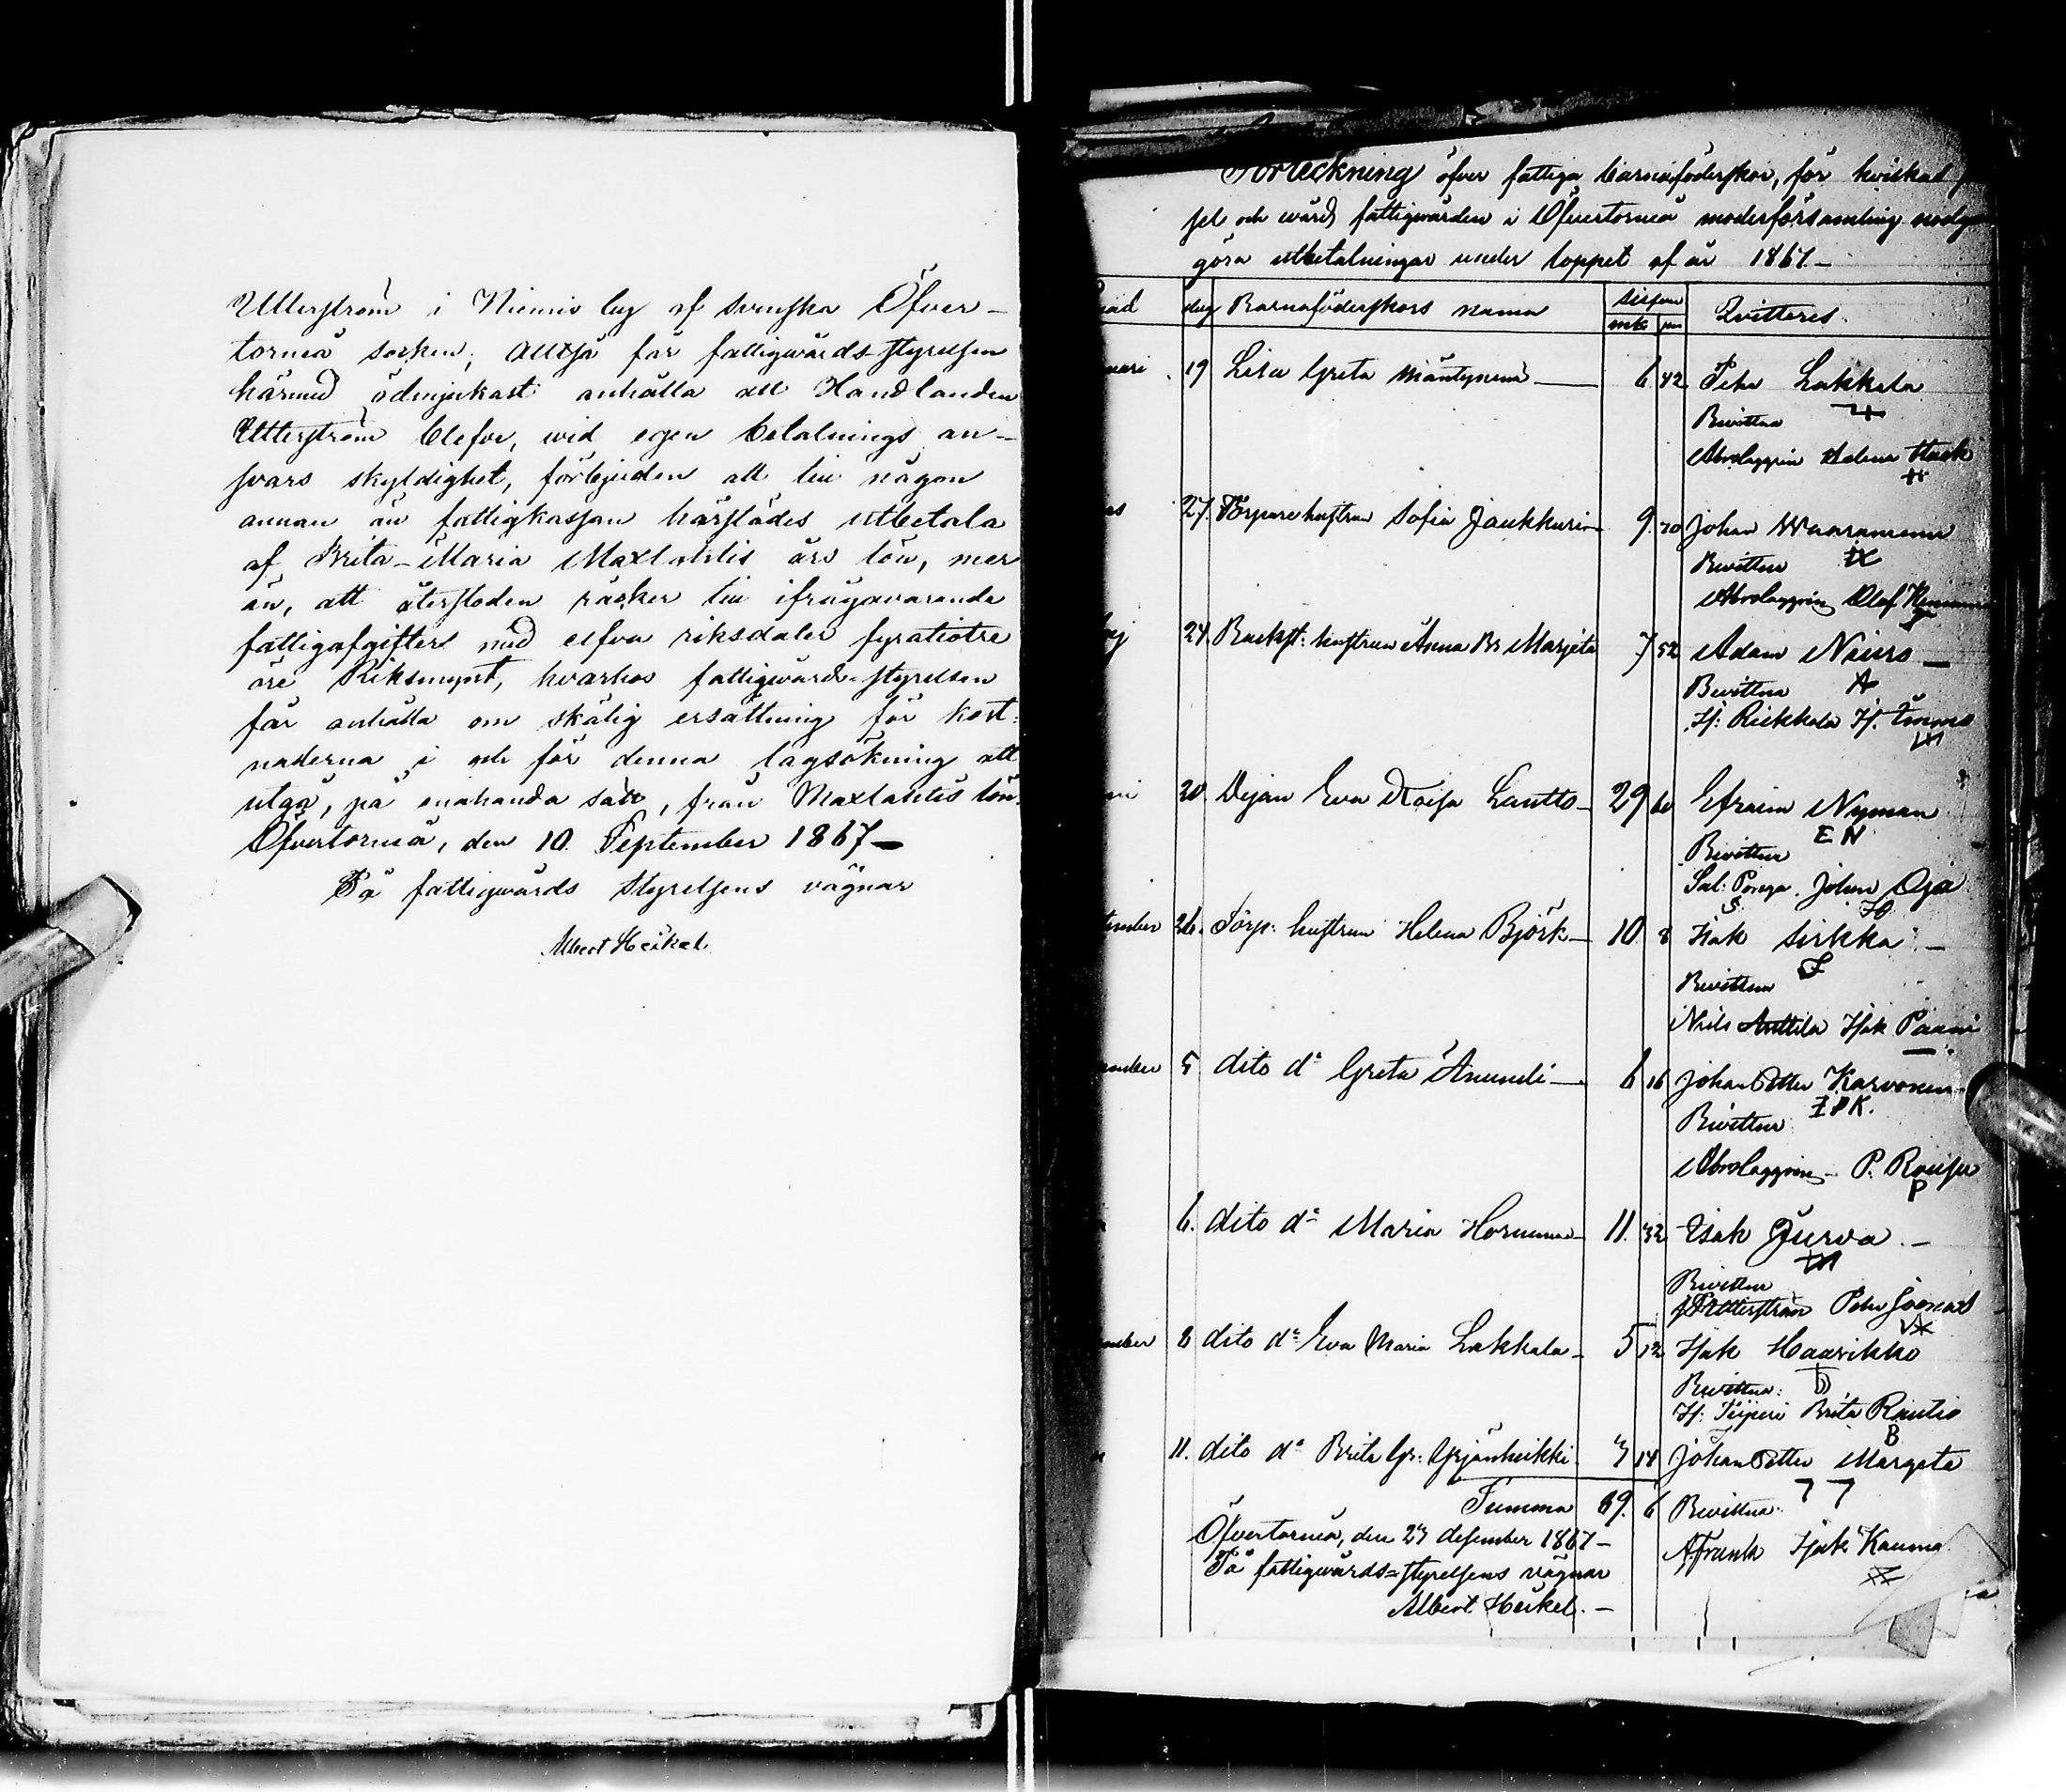 Utterström i Niemis by af svenska Öfver-
torneå socken; Alltså får fattigwårds-styrelsen
härmed ödmjukast anhålla att Handlanden
Utterström blefve, wid egen betalnings an-
svars skyldighet, förbjuden att till någon
annan än fattigkassan härstädes utbetala
af Brita-Maria Maxlahtis års lön, mer
än, att återstoden räcker till ifrågavarande
fattigafgifter med elfva riksdaler fyratiotre
öre Riksmynt, hvarhos fattigwårds-styrelsen
får anhålla om skälig ersättning för kost-
naderna i och för denna lagsökning att
utgå, på enahanda sätt, från Maxlahtis lön.
Öfvertorneå, den 10 September 1867-
På fattigwårds Styrelsens vägnar
Albert Heikel
Förteckning öfver fattiga barnaföderskor, för hvilkas
sel och wård fattigwården i Öfvertorneå moderförsamling
göra utbetalningar under loppet af år 1867-
dag Barnaföderskors namn mk Qvitteras.
19 Lisa Greta Mäntyvaara 6 42 Petter Lakkala
Bevittna
Abr. Laggrin Helena Hack
27. Torparehustrun Sofia Jaukkuri 9. 70 Johan
Bevittna
Abr. Laggrin Olof
24 Backst: hustrun Anna Br Marjeta 7 52 Adam Niuro
Bevittna A
If: Riekkola
20. Pigan Eva Loisa Lantto 29 60 Efraim Nyman
E N
Bevittna
Sal: Ponga. Johan Oja
S. IO
26. Torp: hustrun Helena Björk 10 8 Isak Sirkka
Bevittna
Nils Anttila Isak
5 dito d:o Greta Anundi 6 16 Johan Petter Karvonen
I P K.
Bevittna
Abr. Laggrin P. Rousu
P
6. dito d:o Maria 11. 32 Isak Jurva
Bevittna
Utterström Petter
8 dito d:o Eva Maria Lakkala 5 12 Isak Haarikko
Bevittna:
Brita Rautio
B
11. dito d:o Brita Gr: Yrjänheikki 3 14 Johan Petter Margeta
Summa 89. 6 Bevittna:
Öfvertorneå, den 27 desember 1867- A. Franck Isak Kauma
På fattigwårds-styrelsens vägnar
Albert Heikel.-